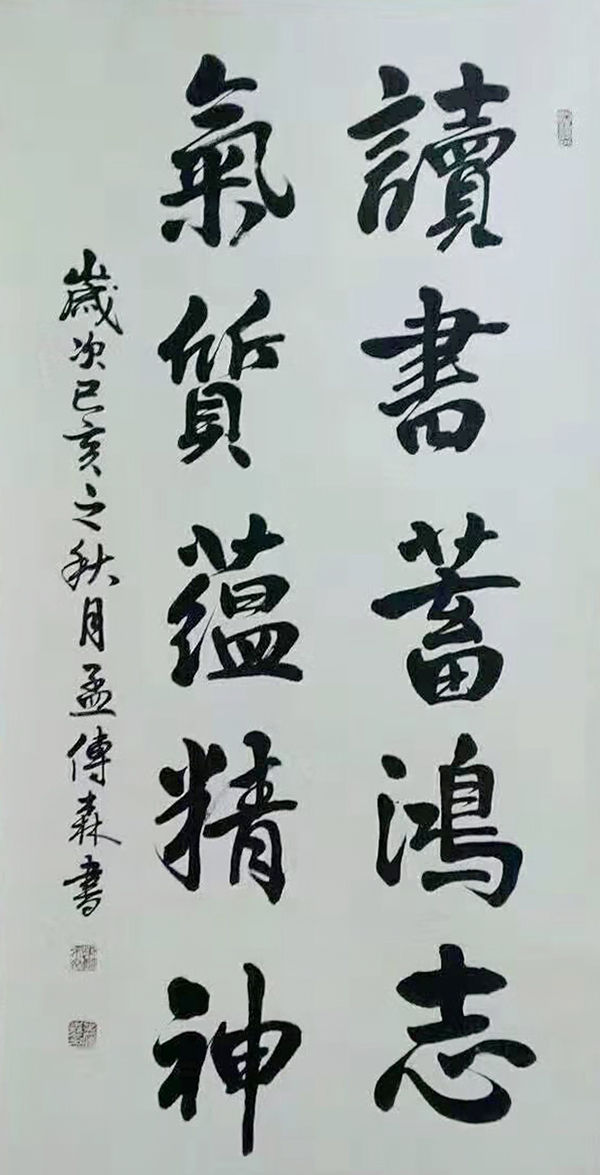 讀書蓄鴻志
氣質蕴精神
歲次己亥之秋月孟傳森書